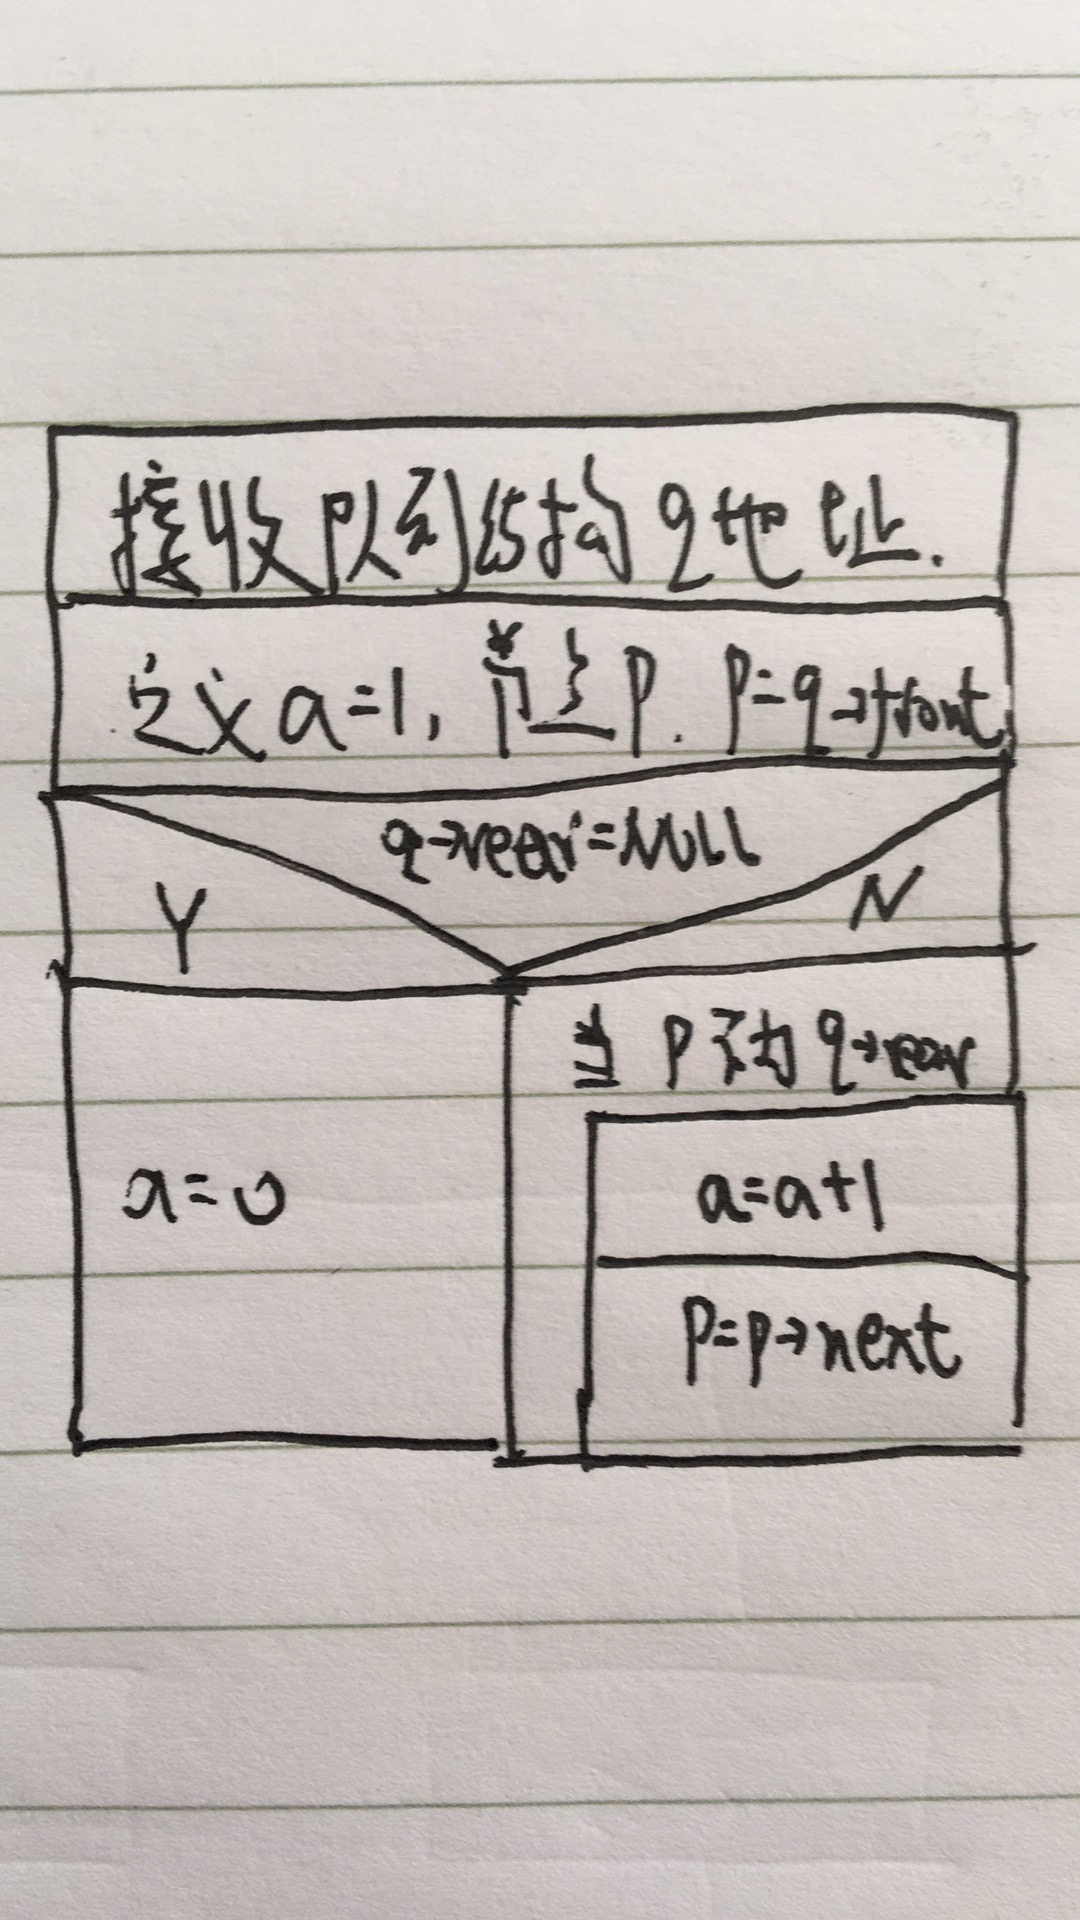 接收队列结构q地址.
定义a=1, 节点p. p=q→front
q→rear=NULL
Y
N
当p不为q→rear
a=0
a=a+1
p=p→next